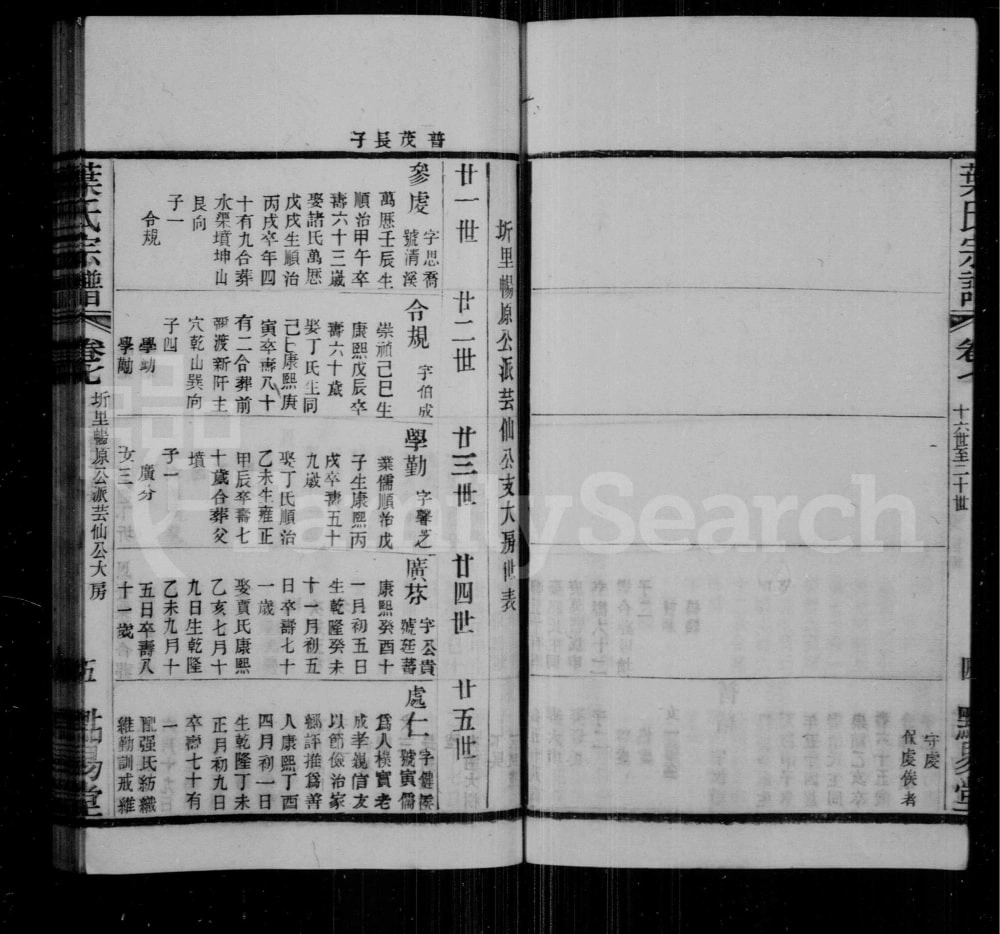 葉氏宗譜
卷七
十六世至二十世
四
點易堂
守處
保處俟考
圻里暢原公派芸仙公支大房世表
廿一世
廿二世
廿三世
廿四世
廿五世
普茂長子
參處
字思喬
號清溪
萬厯壬辰生
順治甲午卒
壽六十三歲
娶諸氏萬厯
戊戌生順治
丙戌卒年四
十有九合葬
水渠墳坤山
艮向
子一
令規
令規
字伯成
崇禎己巳生
康熙戊辰卒
壽六十歲
娶丁氏生同
己巳康熙庚
寅卒壽八十
有二合葬前
瀰渡新阡主
穴乾山巽向
子四
學勤
學勷
學勤
字馨芝
業儒順治戊
子生康熙丙
戌卒壽五十
九歲
娶丁氏順治
乙未生雍正
甲辰卒壽七
十歲合葬父
墳
子一
廣芬
女三
廣芬
字公貴
號莊蕃
康熙癸酉十
一月初五日
生乾隆癸未
十一月初五
日卒壽七十
一歲
娶賈氏康熙
乙亥七月十
九日生乾隆
乙未九月十
五日卒壽八
十一歲合葬
處仁
一字健侯
號寅儒
爲人樸實老
成孝親信友
以節儉治家
鄉評推爲善
人康熙丁酉
四月初一日
生乾隆丁未
正月初九日
卒壽七十有
一
配强氏紡織
維勤訓戒維
葉氏宗譜
卷七
圻里暢原公派芸仙公大房
五
點易堂
FamilySearch